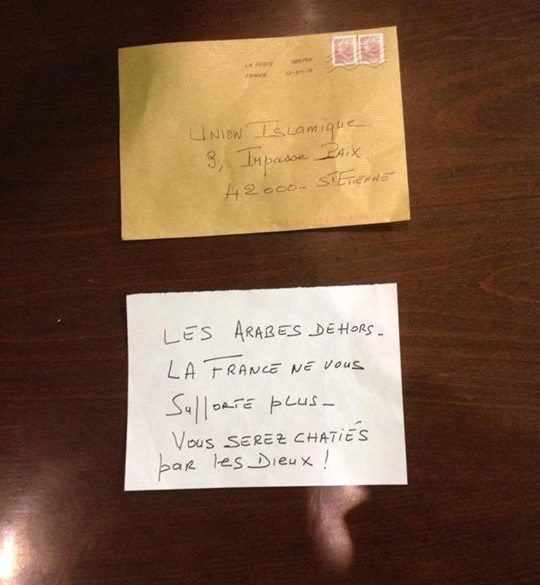 LA POSTE
FRANCE
UNION ISLAMIQUE
9, IMPASSE PAIX
42000 - ST ETIENNE
LES ARABES DEHORS -
LA FRANCE NE VOUS
Supporte plus -
VOUS SEREZ CHATIÉS
par les Dieux !